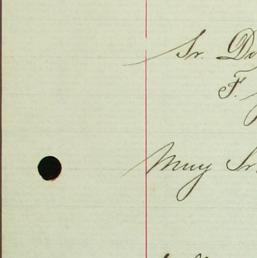 Sr. Do
F.
Muy Sr.